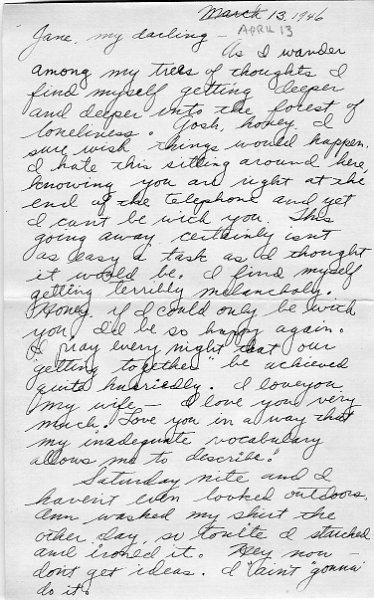 March 13, 1946
APRIL 13
Jane, my darling -
As I wander
among my trees of thoughts I
find myself getting deeper
and deeper into the forest of
loneliness. Gosh, honey, I
sure wish things would happen.
I hate this sitting around here,
knowing you are right at the
end of the telephone and yet
I can't be with you. This
going away certainly isn't
as easy a task as I thought
it would be. I find myself
getting terribly melancholy.
Honey, if I could only be with
you I'd be so happy again.
I pray every night that our
"getting together" be achieved
quite hurriedly. I love you,
my wife - I love you very
much. "Love you in a way that
my inadequate vocabulary
allows me to describe."
Saturday nite and I
haven't even looked outdoors.
Ann washed my shirt the
other day, so tonite I starched
and ironed it. Hey now -
don't get ideas. I "ain't gonna"
do it.